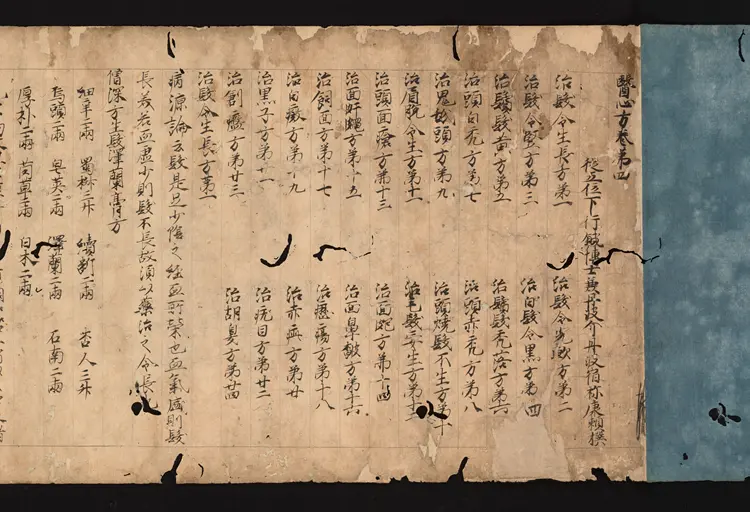 醫心方卷第四
從五位下行鍼博士兼丹波介丹波宿祢康頼撰
治髮令生長方第一 治髮令光濙方第二
治髮令堅方第三 治白髮令黑方第四
治鬢髮黄方第五 治鬢髮禿落方第六
治頭白禿方第七 治頭赤禿方第八
治鬼舐頭方第九 治頭燒髮不生方第十
治眉脫令生方第十一 治毛髮妄生方第十二
治頭面瘡方第十三 治面皰方第十四
治面䵟䵳方第十五 治面皶方第十六
治飼面方第十七 治癧瘍方第十八
治白癜方第十九 治赤疵方第廿
治黑子方第廿一 治疣目方第廿二
治創瘢方第廿三 治胡臭方第廿四
治髮令生長方第一
病源論云髮是足少陰之經血所榮也血氣盛則髮
長美若血虛少則髮不長故須以藥治之令長
僧深方生髮澤蘭膏方
細辛二兩 蜀椒三升 續断二兩 杏人三升
烏頭二兩 皂莢二兩 澤蘭二兩 石南二兩
厚朴二兩 莽草二兩 白朮二兩